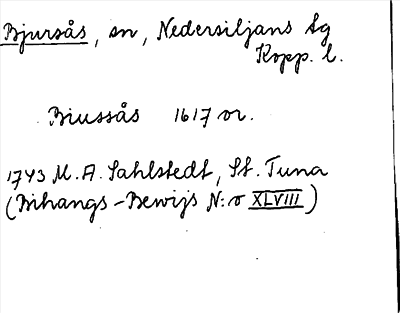 Bjursås, sn, Nedersiljans tg
Kopp. l.
Biussås 1617 or.
1743 M. A. Sahlstedt, St. Tuna
(Bihangs-Bewijs N:o XLVIII)